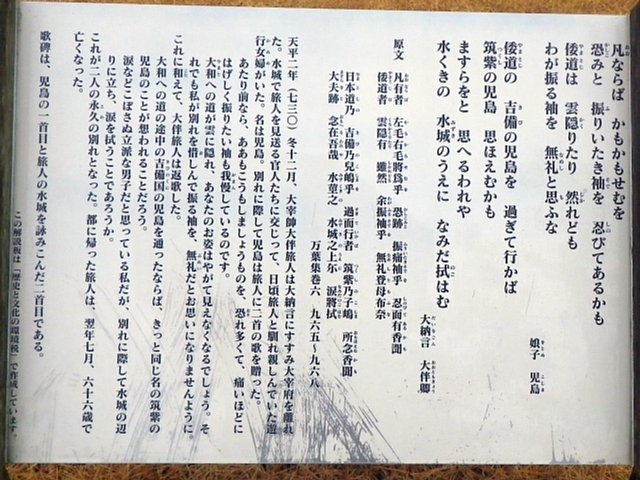 凡ならば　かもかもせむを
恐みと　振りいたき袖を　忍びてあるかも
倭道は　雲隠りたり　然れども
わが振る袖を　無礼と思ふな
娘子　児島
倭道の　吉備の児島を　過ぎて行かば
筑紫の児島　思ほえむかも
ますらをと　思へるわれや
水くきの　水城のうえに　なみだ拭はむ
大納言　大伴卿
原文　凡有者　左毛右毛将為乎　恐跡　振痛袖乎　忍而有香聞
倭道者　雲隠有　雖然　余振袖乎　無礼登母布奈
日本道乃　吉備乃児嶋乎　過而行者　筑紫乃子嶋　所念香聞
大夫跡　念在吾哉　水莖之　水城之上尓　涙将拭
万葉集巻六　九六五～九六八
天平二年（七三〇）冬十二月、大宰帥大伴旅人は大納言にすすみ大宰府を離れ
た。水城で旅人を見送る官人たちに交じって、日頃旅人と馴れ親しんでいた遊
行女婦がいた。名は児島。別れに際して児島は旅人に二首の歌を贈った。
あたり前なら、ああもこうもしましょうものを、恐れ多くて、痛いほどに
はげしく振りたい袖も我慢しているのです。
大和への道が雲に隠れ、あなたのお姿はやがて見えなくなるでしょう。そ
れでも私が別れを惜しんで振る袖を、無礼だとお思いになりませんように。
これに和えて、大伴旅人は返歌した。
大和への道の途中の吉備国の児島を通ったならば、きっと同じ名の筑紫の
児島のことが想われることだろう。
涙などこぼさぬ立派な男子だと思っている私だが、別れに際して水城の辺
りに立ち、涙を拭うことであろうか。
これが二人の永久の別れとなった。都に帰った旅人は、翌年七月、六十六歳で
亡くなった。
歌碑は、児島の一首目と旅人の水城を詠みこんだ二首目である。
この解説板は「歴史と文化の環境税」で作成しています。